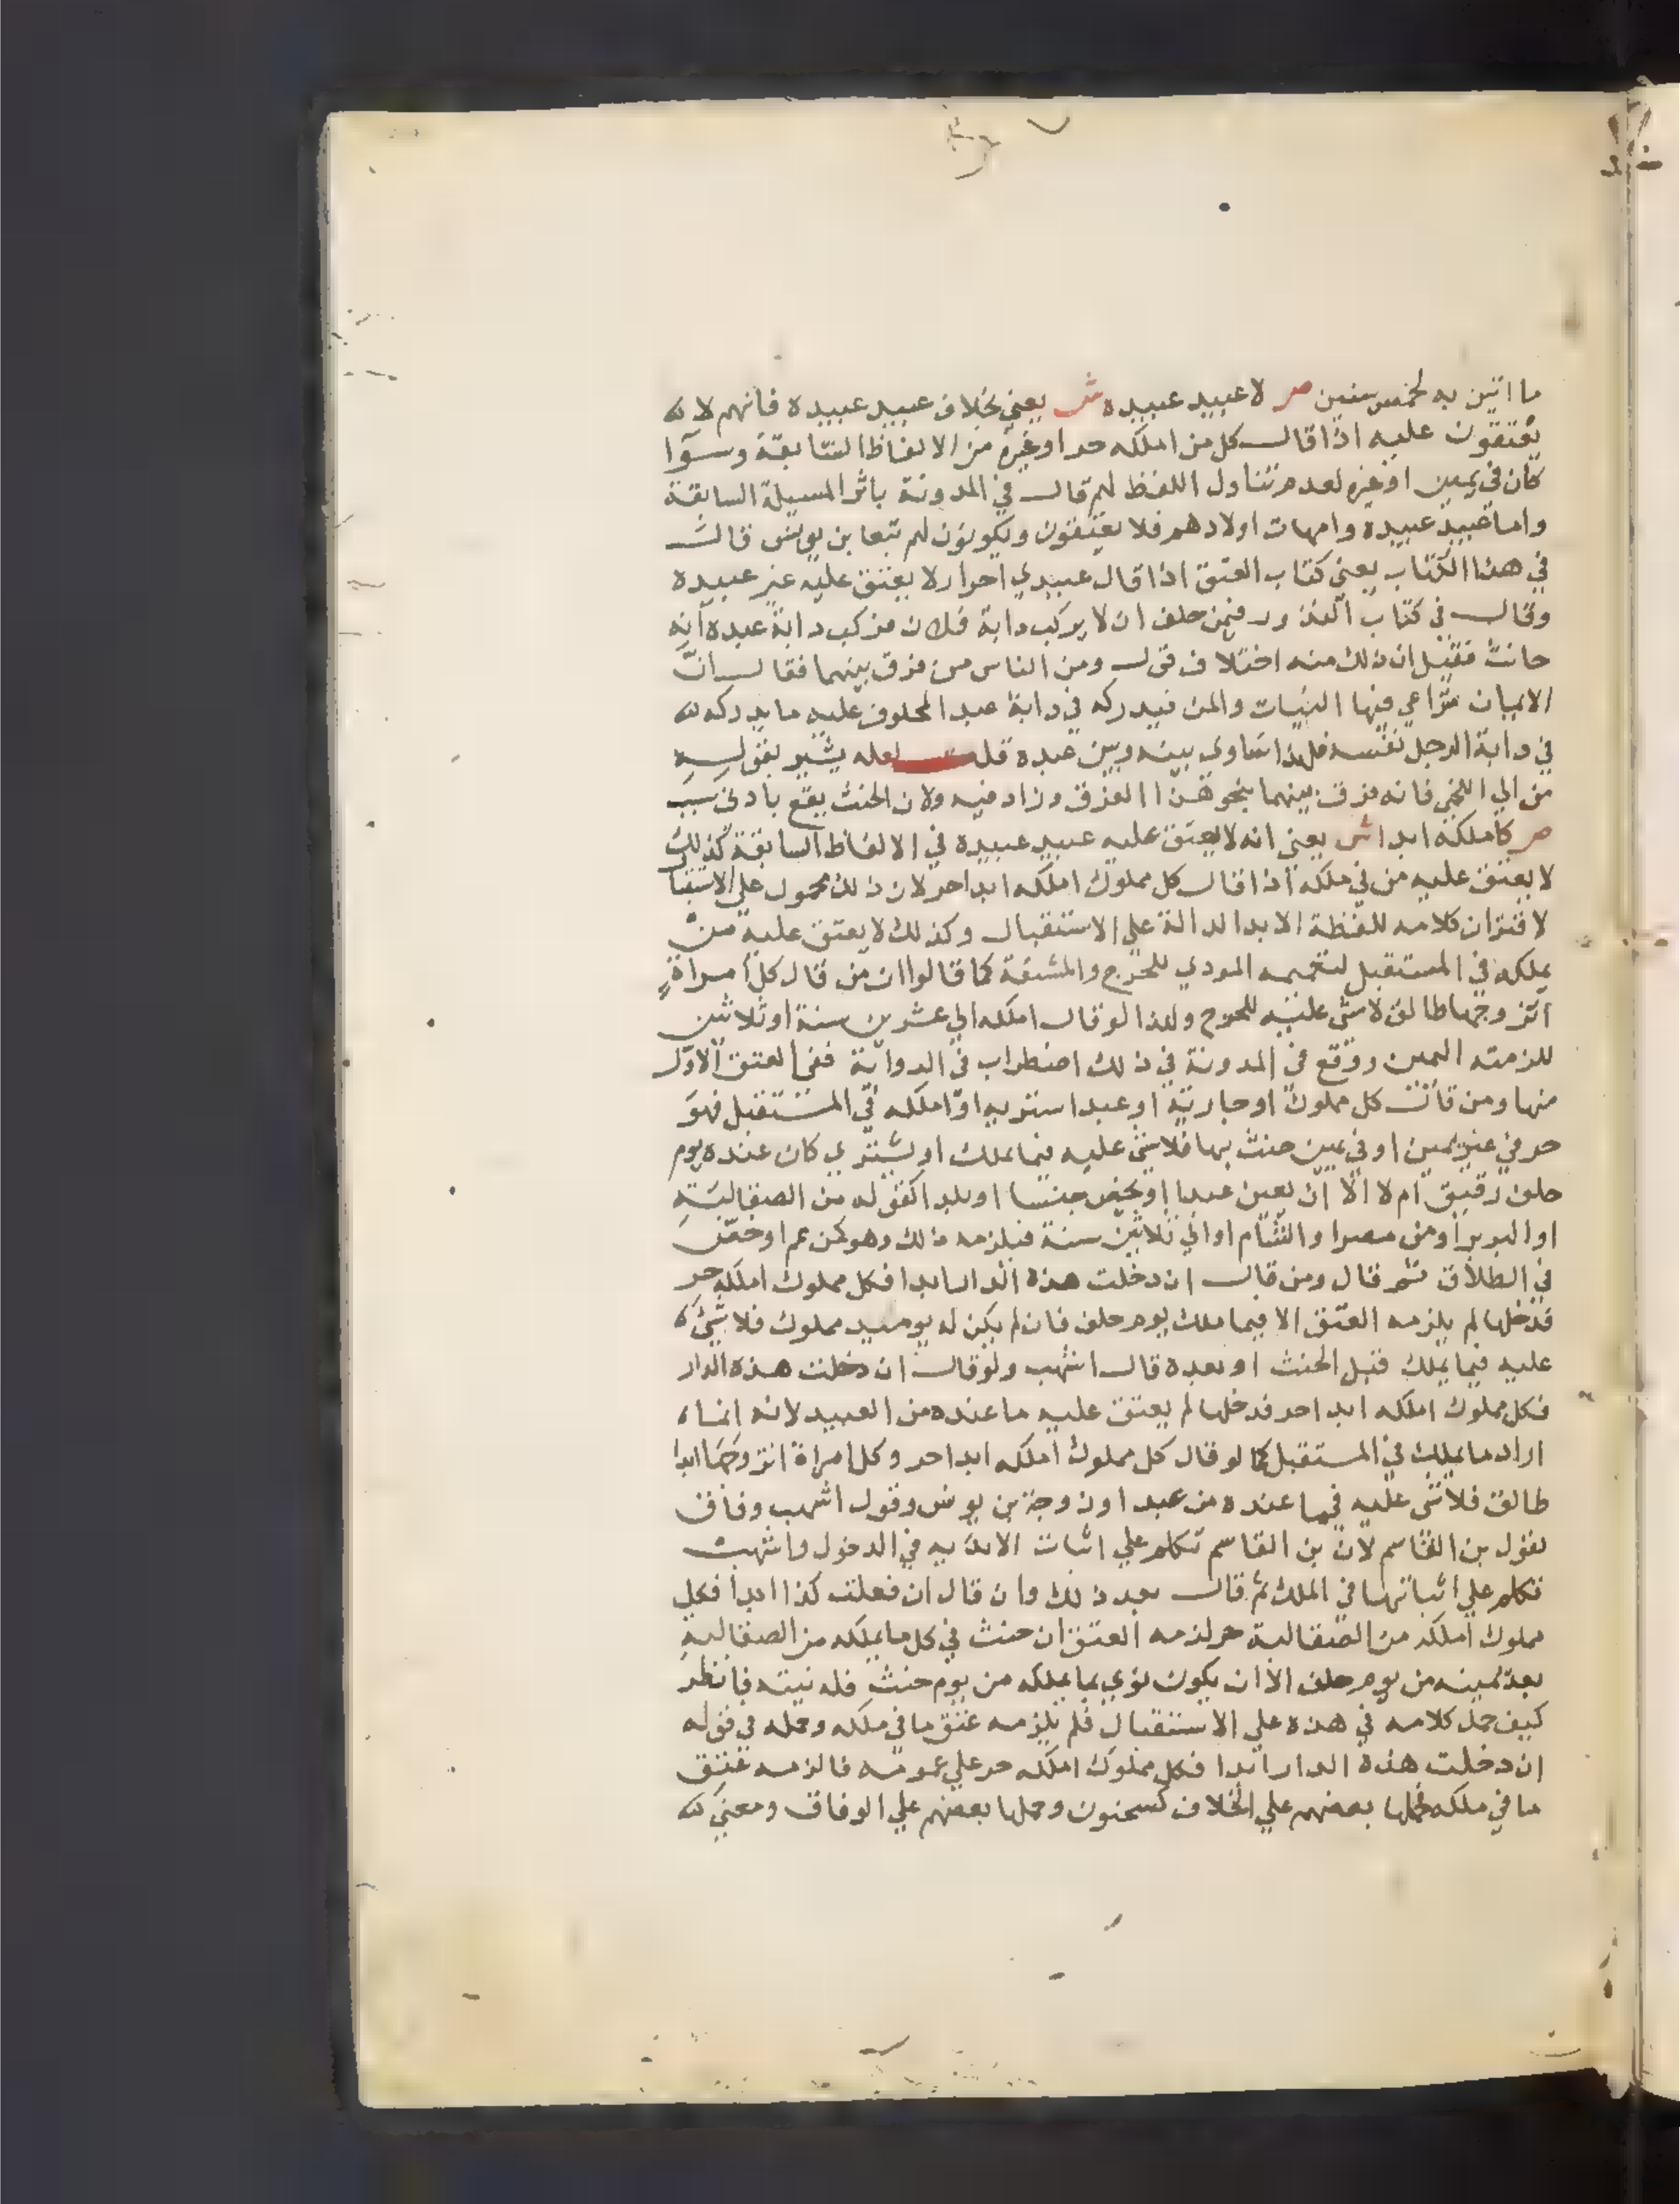 ما اتين به لخمس سنين ص لا عبيد عبيده ش يعني بخلاف عبيد عبيده فانهم لا
يعتقون عليه اذا قال كل من املكه حر او غيره من الالفاظ السابقة وسوآ
كان في يمين او غيره لعدم تناول اللفظ لهم قال في المدونة باثر المسيلة السابقة
واما عبيد عبيده وامهات اولادهم فلا يعتقون ويكونون لهم تبعا بن يونس قال
في هذا الكتاب يعني كتاب العتق اذا قال عبيدي احرار لا يعتق عليه غير عبيده
وقال في كتاب النذور فيمن حلف ان لا يركب دابة فلان فركب دابة عبده انه
حانث فقيل ان ذلك منه اختلاف قول ومن الناس من فرق بينهما فقال ان
الايمان تراعي فيها النيات والمن فيدركه في دابة عبد المحلوف عليه ما يدركه
في دابة الرجل نفسه فلهذا ساوي بينه وبين عبده قلت لعله يشير بقوله
من الي اللخمي فانه فرق بينهما بنحو هذا الفرق وزاد فيه ولان الحنث يقع بادني سبب
ص كاملكه ابدا ش يعني انه لا يعتق عليه عبيد عبيده في الالفاظ السابقة كذلك
لا يعتق عليه من في ملكه اذا قال كل مملوك املكه ابدا حر لان ذلك محمول علي الاستقبا
لاقتران كلامه للفظة الابد الدالة علي الاستقبال وكذلك لا يعتق عليه من
يملكه في المستقبل لتعميمه المودي للحرج والمشقة كما قالوا ان من قال كل امراة
اتزوجها طالق لا شي عليه للحرج ولهذا لو قال املكه الي عشرين سنة او ثلاثين
للزمته اليمين ووقع في المدونة في ذلك اضطراب في الرواية ففي العتق الاول
منها ومن قال كل مملوك او جارية او عبد اشتريه او املكه في المستقبل فهو
حر في غير يمين او في يمين حنث بها فلا شي عليه فيما يملك او يشتري كان عنده يوم
حلف رقيق ام لا الا ان يعين عبدا او يخص جنسا او بلدا كقوله من الصقالبة
او البربر او من مصر او الشام او الي ثلاثين سنة فيلزمه ذلك وهو كمن عم او خص
في الطلاق ثم قال ومن قال ان دخلت هذه الدار ابدا فكل مملوك املكه حر
فدخلها لم يلزمه العتق الا فيما ملك يوم حلف فان لم يكن له يوميد مملوك فلا شي
عليه فيما يملك قبل الحنث او بعده قال اشهب ولو قال ان دخلت هذه الدار
فكل مملوك املكه ابدا حر فدخلها لم يعتق عليه ما عنده من العبيد لانه انما
اراد ما يملك في المستقبل كما لو قال كل مملوك املكه ابدا حر وكل امراة اتزوجها ابدا
طالق فلا شي عليه فيما عنده من عبد او زوجة بن يونس وقول اشهب وفاق
لقول بن القاسم لان بن القاسم تكلم علي اثبات الابدية في الدخول واشهب
تكلم علي اثباتها في الملك ثم قال بعد ذلك وان قال ان فعلت كذا ابدا فكل
مملوك املكه من الصقالبة حر لزمه العتق ان حنث في كل ما يملكه من الصقالبة
بعد يمينه من يوم حلف الا ان يكون نوي بما يملكه من يوم حنث فله نيته فانظر
كيف حمل كلامه في هذه علي الاستقبال فلم يلزمه عتق ما في ملكه وحمله في قوله
ان دخلت هذه الدار ابدا فكل مملوك املكه حر علي عمومه فالزمه عتق
ما في ملكه فحملها بعضهم علي الخلاف كسحنون وحملها بعضهم علي الوفاق ومعني